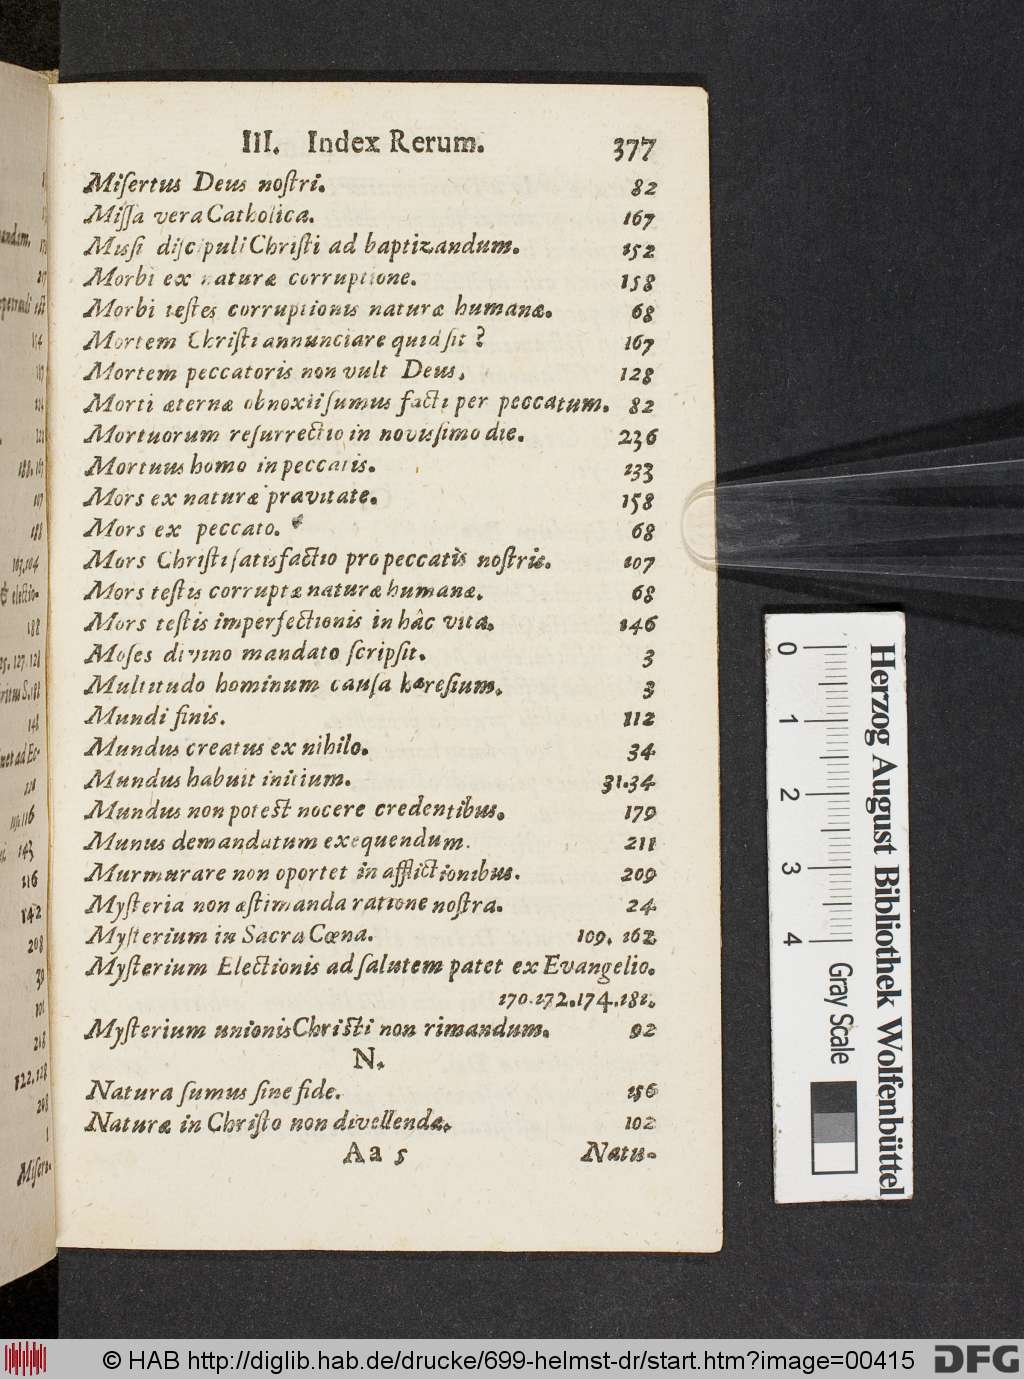 III. Index Rerum. 377
Miſertus Deus noſtri. 82
Miſſa vera Catholica. 167
Missi diſcipuli Chriſti ad baptizandum. 152
Morbi ex naturæ corruptione. 158
Morbi teſtes corruptionis naturæ humanæ. 68
Mortem Chriſti annunciare quid ſit ? 167
Mortem peccatoris non vult Deus. 128
Morti æternæ obnoxii ſumus facti per peccatum. 82
Mortuorum reſurrectio in novisſimo die. 236
Mortuus homo in peccatis. 133
Mors ex naturæ pravitate. 158
Mors ex peccato. 68
Mors Chriſti ſatisfactio pro peccatis noſtris. 107
Mors teſtis corruptæ naturæ humanæ. 68
Mors teſtis imperfectionis in hâc vita. 146
Moſes divino mandato ſcripſit. 3
Multitudo hominum cauſa hæreſium. 3
Mundi finis. 112
Mundus creatus ex nihilo. 34
Mundus habuit initium. 31.34
Mundus non poteſt nocere credentibus. 179
Munus demandatum exequendum. 211
Murmurare non oportet in afflictionibus. 209
Myſteria non æſtimanda ratione noſtra. 24
Myſterium in Sacra Cœna. 109. 162
Myſterium Electionis ad ſalutem patet ex Evangelio.
170.172.174.181.
Myſterium unionis Chriſti non rimandum. 92
N.
Natura ſumus ſine fide. 156
Naturæ in Chriſto non divellendæ. 102
Aa 5 Natu-
0 1 2 3 4 Gray Scale
Herzog August Bibliothek Wolfenbüttel
© HAB http://diglib.hab.de/drucke/699-helmst-dr/start.htm?image=00415 DFG